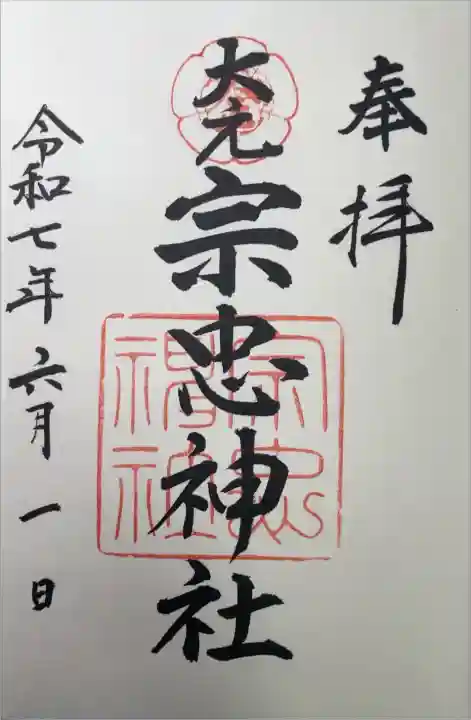 奉拝
大元
宗忠神社
宗忠神社
令和七年六月一日